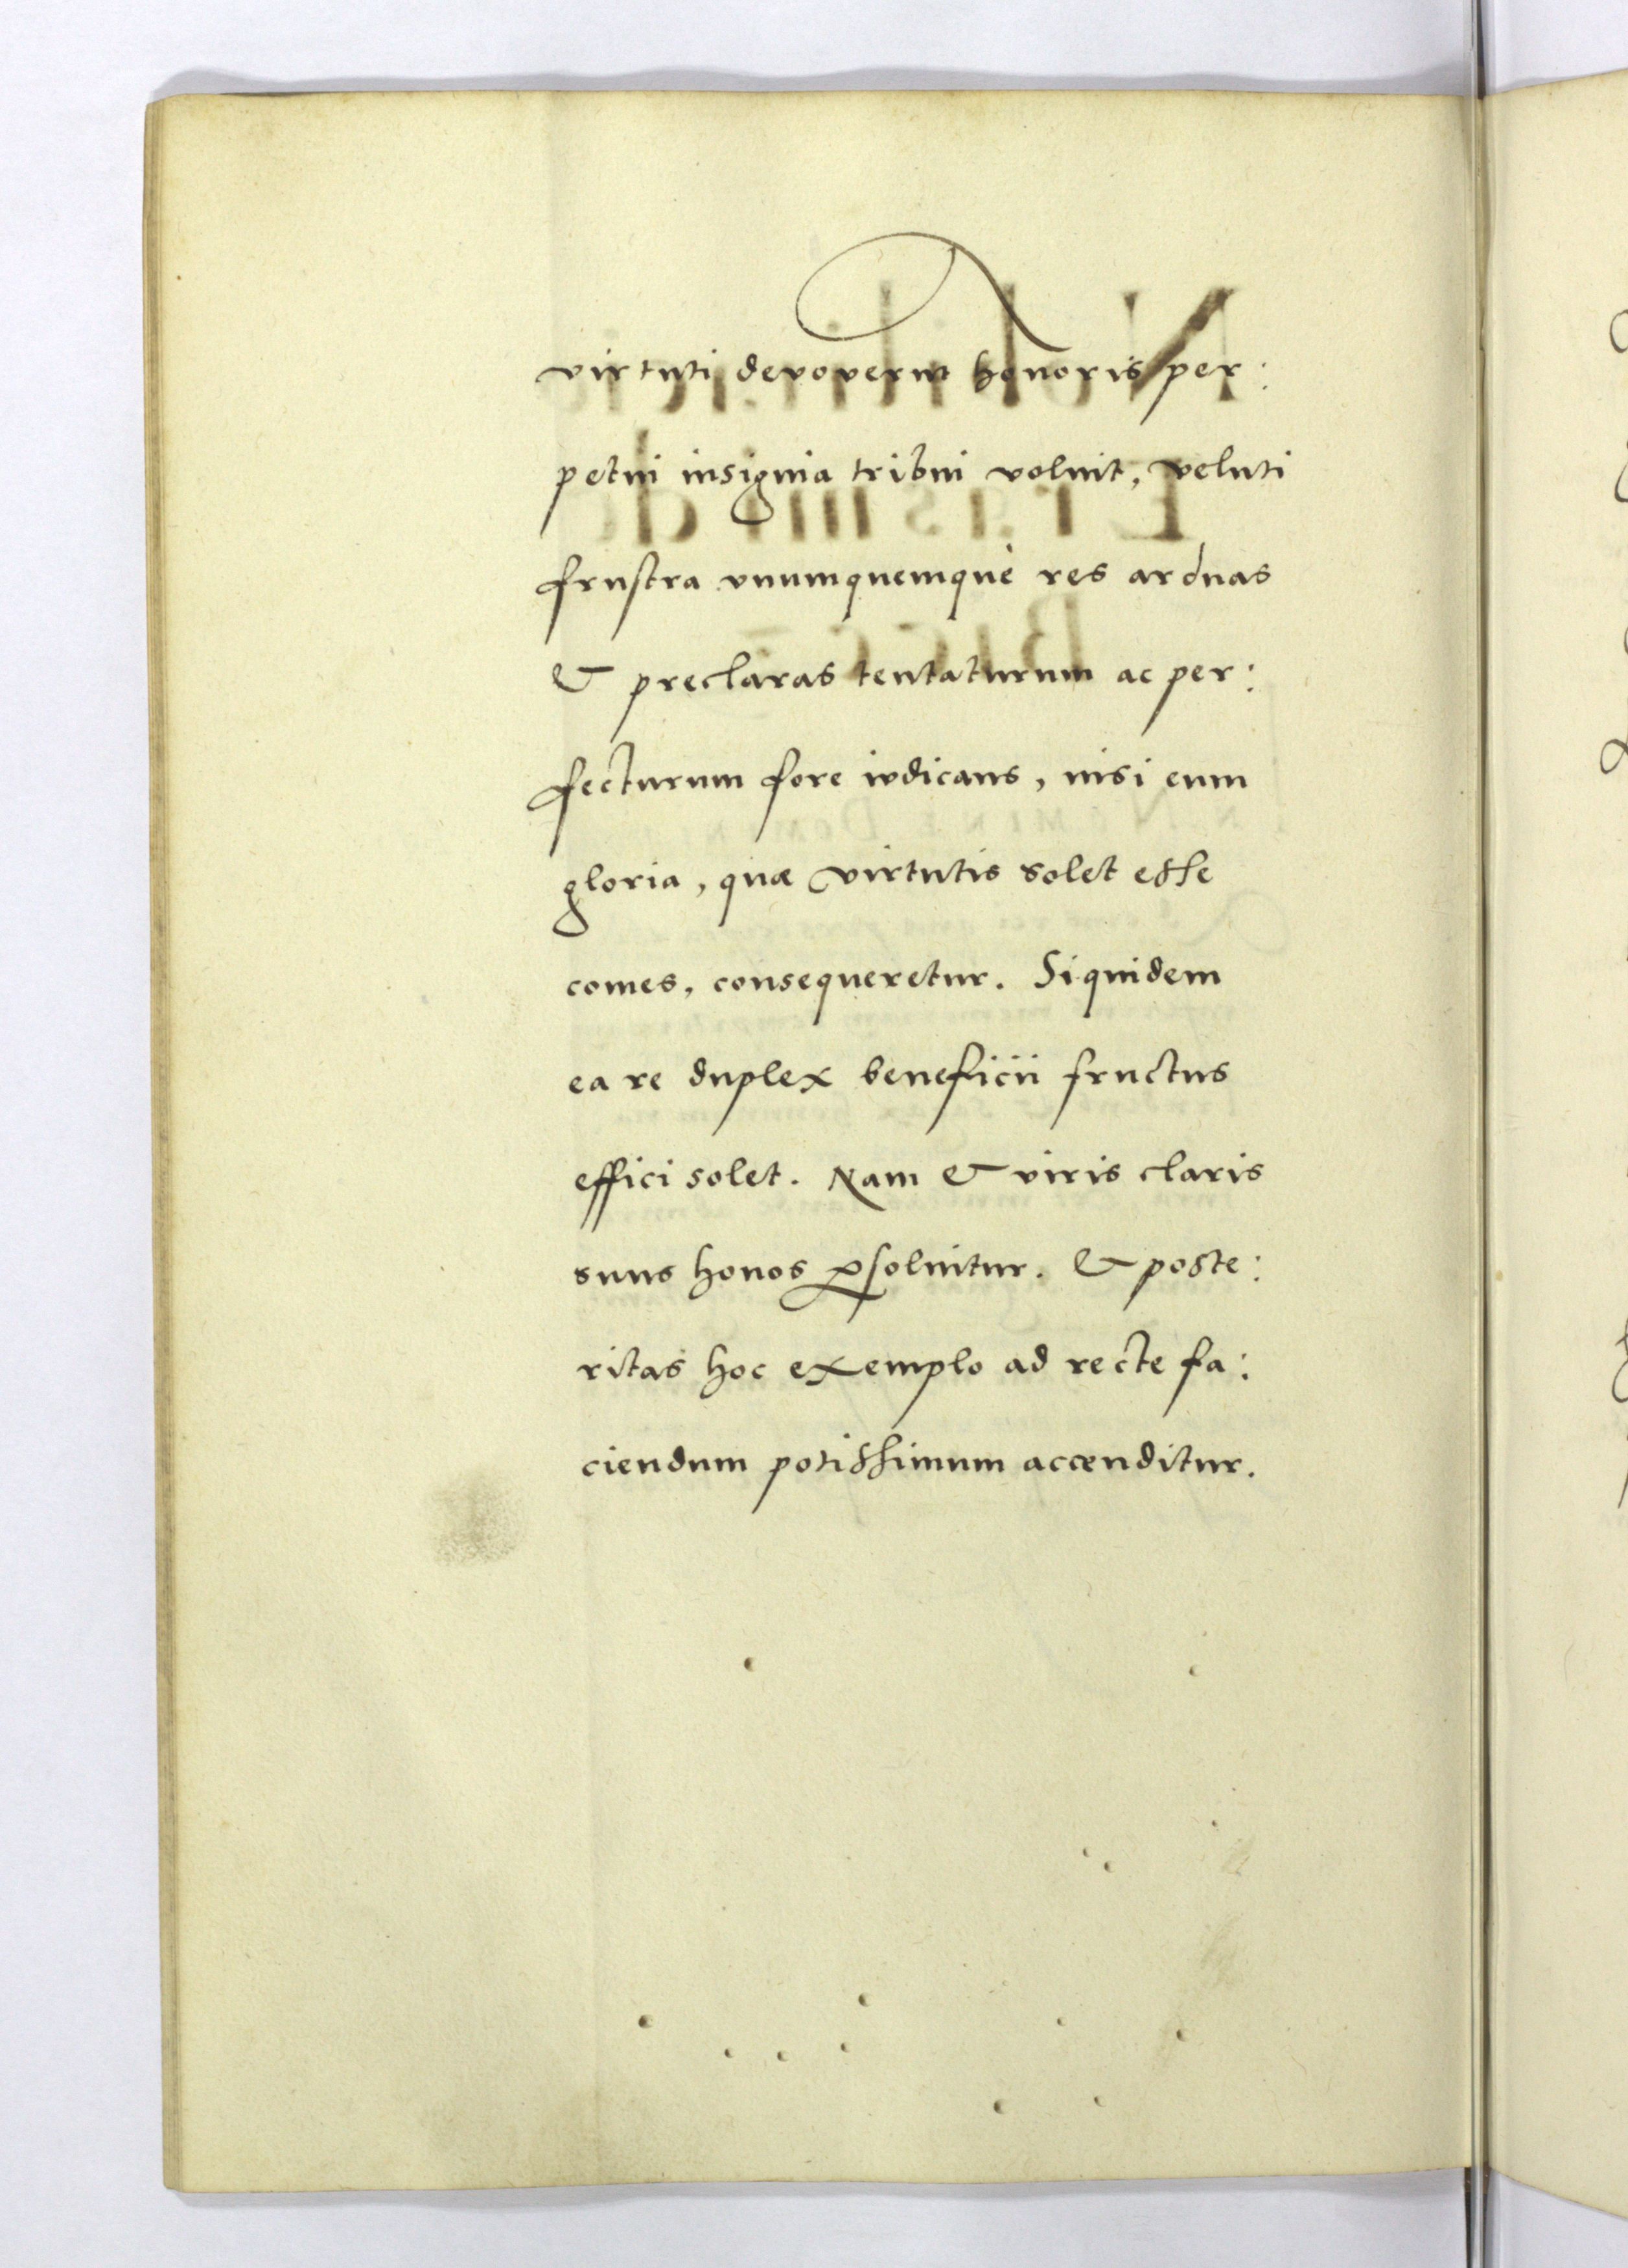 virtuti devoverint honoris per:
petui insignia tribui voluit, veluti
frustra unumquemque res arduas
& preclaras tentaturum ac per:
fecturum fore iudicans, nisi eum
gloria, quæ virtutis solet esse
comes, consequeretur. Siquidem
ea re duplex beneficii fructus
effici solet. Nam & viris claris
suus honos ꝑsoluitur. & poste:
ritas hoc exemplo ad recte fa:
ciendum potissimum accenditur.